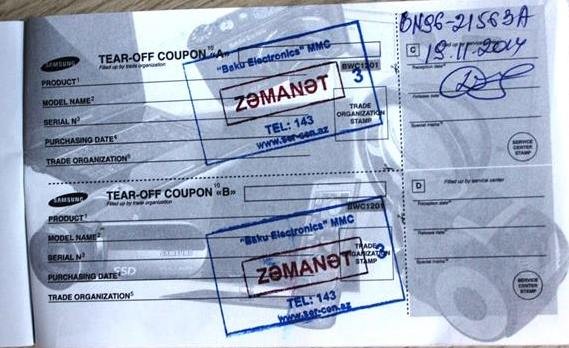 BN96-21563A
SAMSUNG TEAR-OFF COUPON¹⁰ «A»
Filled up by trade organization
PRODUCT¹
BWC1201
MODEL NAME²
SERIAL N³
PURCHASING DATE⁴
TRADE ORGANIZATION⁵
TRADE ORGANIZATION STAMP
"Baku Electronics" MMC
ZƏMANƏT
3
TEL: 143
www.ser-cen.az
C
19.11.2014
Reception date⁶
Release date
Special marks
SERVICE CENTER STAMP
SAMSUNG TEAR-OFF COUPON¹⁰ «B»
Filled up by trade organization
PRODUCT¹
BWC1201
MODEL NAME²
SERIAL N³
PURCHASING DATE⁴
TRADE ORGANIZATION⁵
TRADE ORGANIZATION STAMP
"Baku Electronics" MMC
ZƏMANƏT
3
TEL: 143
www.ser-cen.az
D
Filled up by service center
Reception date⁶
Release date
Special marks
SERVICE CENTER STAMP
SSD